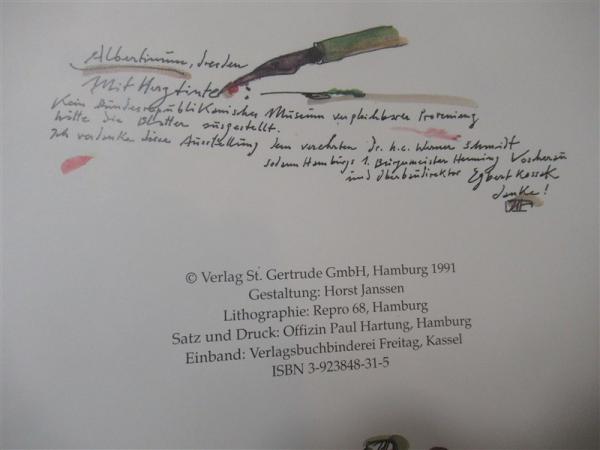 Albertinum, Dresden
Mit Herztinte
Kein Bundesrepublikanisches Museum vergleichbarer Provenienz
hätte die Blätter ausgestellt.
Ich verdanke diese Ausstellung dem verehrten Dr. h.c. Werner Schmidt
sodann Hamburgs 1. Bürgermeister Henning Voscherau
und Oberbaudirektor Egbert Kossak
danke!
© Verlag St. Gertrude GmbH, Hamburg 1991
Gestaltung: Horst Janssen
Lithographie: Repro 68, Hamburg
Satz und Druck: Offizin Paul Hartung, Hamburg
Einband: Verlagsbuchbinderei Freitag, Kassel
ISBN 3-923848-31-5